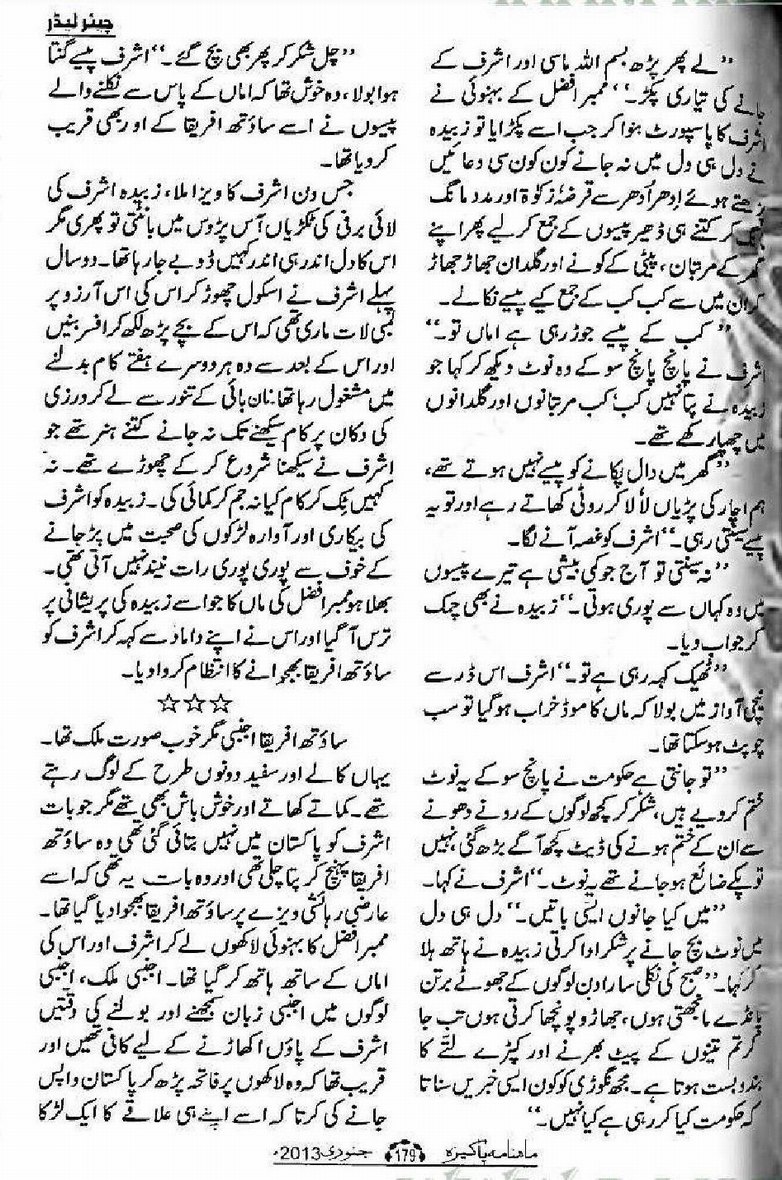 چیئر لیڈر
”لے پھر پڑھ بسم اللہ ماسی اور اشرف کے
جانے کی تیاری پکڑ۔“ ممبر افضل کے بہنوئی نے
اشرف کا پاسپورٹ بنوا کر جب اسے پکڑایا تو زبیدہ
نے دل ہی دل میں نہ جانے کون کون سی دعائیں
پڑھتے ہوئے اِدھر اُدھر سے قرضہ زکوٰۃ اور مدد مانگ
کر کتنے ہی ڈھیر پیسوں کے جمع کر لیے پھر اپنے
گھر کے مرتبان، پیٹی کے کونے اور گلدان جھاڑ جھاڑ
کر ان میں سے کب کب کے جمع کیے پیسے نکالے۔
”کب کے پیسے جوڑ رہی ہے اماں تو۔“
اشرف نے پانچ پانچ سو کے وہ نوٹ دیکھ کر کہا جو
زبیدہ نے پتا نہیں کب کب مرتبانوں اور گلدانوں
میں چھپا رکھے تھے۔
”گھر میں دال پکانے کو پیسے نہیں ہوتے تھے،
ہم اچار کی پڑیاں لا لا کر روٹی کھاتے رہے اور تو یہ
پیسے سینتی رہی۔“ اشرف کو غصہ آنے لگا۔
”نہ سینتی تو آج جو کمی بیشی ہے تیرے پیسوں
میں وہ کہاں سے پوری ہوتی۔“ زبیدہ نے بھی چمک
کر جواب دیا۔
”ٹھیک کہہ رہی ہے تو۔“ اشرف اس ڈر سے
نیچی آواز میں بولا کہ ماں کا موڈ خراب ہو گیا تو سب
چوپٹ ہو سکتا تھا۔
”تو جانتی ہے حکومت نے پانچ سو کے یہ نوٹ
ختم کر دیے ہیں، شکر کر کچھ لوگوں کے رونے دھونے
سے ان کے ختم ہونے کی ڈیٹ کچھ آگے بڑھ گئی نہیں
تو پکے ضائع ہو جانے تھے یہ نوٹ۔“ اشرف نے کہا۔
”میں کیا جانوں ایسی باتیں۔“ دل ہی دل
میں نوٹ بچ جانے پر شکر ادا کرتی زبیدہ نے ہاتھ ہلا
کر کہا۔ ”صبح کی نکلی سارا دن لوگوں کے جھوٹے برتن
بانڈے مانجھتی ہوں، جھاڑو پونچھا کرتی ہوں تب جا
کر تم تینوں کے پیٹ بھرنے اور کپڑے لتّے کا
بندوبست ہوتا ہے۔ مجھ نگوڑی کو کون ایسی خبریں سناتا
کہ حکومت کیا کر رہی ہے کیا نہیں۔“
”چل شکر کر پھر بھی بچ گئے۔“ اشرف پیسے گنتا
ہوا بولا، وہ خوش تھا کہ اماں کے پاس سے نکلنے والے
پیسوں نے اسے ساؤتھ افریقا کے اور بھی قریب
کر دیا تھا۔
جس دن اشرف کا ویزا ملا، زبیدہ اشرف کی
لائی برفی کی ٹکڑیاں آس پڑوس میں بانٹتی تو پھری مگر
اس کا دل اندر ہی اندر کہیں ڈوبے جا رہا تھا۔ دو سال
پہلے اشرف نے اسکول چھوڑ کر اس کی اس آرزو پر
لمبی لات ماری تھی کہ اس کے بچے پڑھ لکھ کر افسر بنیں
اور اس کے بعد سے وہ ہر دوسرے ہفتے کام بدلنے
میں مشغول رہا تھا: نان بائی کے تنور سے لے کر درزی
کی دکان پر کام سیکھنے تک نہ جانے کتنے ہنر تھے جو
اشرف نے سیکھنا شروع کر کے چھوڑے تھے۔ نہ
کہیں ٹک کر کام کیا نہ جم کر کمائی کی۔ زبیدہ کو اشرف
کی بیکاری اور آوارہ لڑکوں کی صحبت میں پڑ جانے
کے خوف سے پوری پوری رات نیند نہیں آتی تھی۔
بھلا ہو ممبر افضل کی ماں کا جو اسے زبیدہ کی پریشانی پر
ترس آ گیا اور اس نے اپنے داماد سے کہہ کر اشرف کو
ساؤتھ افریقا بھجوانے کا انتظام کروا دیا۔
☆☆☆
ساؤتھ افریقا اجنبی مگر خوب صورت ملک تھا۔
یہاں کالے اور سفید دونوں طرح کے لوگ رہتے
تھے۔ کماتے کھاتے اور خوش باش بھی تھے مگر جو بات
اشرف کو پاکستان میں نہیں بتائی گئی تھی وہ ساؤتھ
افریقا پہنچ کر پتا چلی تھی اور وہ بات یہ تھی کہ اسے
عارضی رہائشی ویزے پر ساؤتھ افریقا بھجوا دیا گیا تھا۔
ممبر افضل کا بہنوئی لاکھوں لے کر اشرف اور اس کی
اماں کے ساتھ ہاتھ کر گیا تھا۔ اجنبی ملک، اجنبی
لوگوں میں اجنبی زبان سمجھنے اور بولنے کی دقتیں
اشرف کے پاؤں اکھاڑنے کے لیے کافی تھیں اور
قریب تھا کہ وہ لاکھوں پر فاتحہ پڑھ کر پاکستان واپس
جانے کی کرتا کہ اسے اپنے ہی علاقے کا ایک لڑکا
ماهنامه پاکیزہ 179 جنوری 2013ء